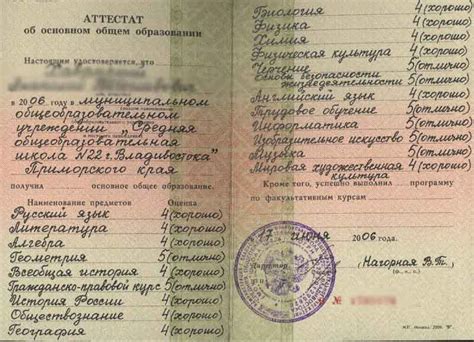 АТТЕСТАТ
об основном общем образовании
Настоящим удостоверяется, что
в 2006 году в муниципальном
общеобразовательном
учреждении „Средняя
общеобразовательная
школа №22 г. Владивостока"
Приморского края
получил основное общее образование.
Наименование предметов Оценка
Русский язык 4 (хорошо)
Литература 4 (хорошо)
Алгебра 4 (хорошо)
Геометрия 5 (отлично)
Всеобщая история 4 (хорошо)
Гражданско-правовой курс 5 (отлично)
История России 4 (хорошо)
Обществознание 4 (хорошо)
География 4 (хорошо)
Биология 4 (хорошо)
Физика 4 (хорошо)
Химия 4 (хорошо)
Физическая культура 4 (хорошо)
Черчение 5 (отлично)
Основы безопасности
жизнедеятельности 5 (отлично)
Английский язык 4 (хорошо)
Трудовое обучение 5 (отлично)
Информатика 5 (отлично)
Изобразительное искусство 5 (отлично)
Музыка 5 (отлично)
Мировая художественная 4 (хорошо)
культура
Кроме того, успешно выполнил программу
по факультативным курсам
17 июня 2006 года.
Директор
Нагорная В.Т.
(ф., и., о.)
№